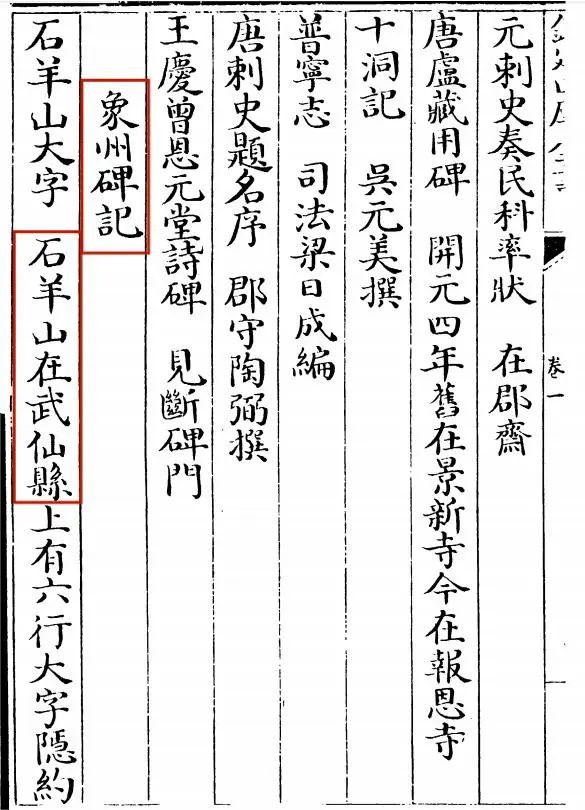 元刺史奏民科率狀　在郡齋
唐盧藏用碑　開元四年舊在景新寺今在報恩寺
十洞記　吳元美撰
普寧志　司法梁日成編
唐刺史題名序　郡守陶弼撰
王慶曾思元堂詩碑　見斷碑門
象州碑記
石羊山大字　石羊山在武仙縣上有六行大字隱約
卷一